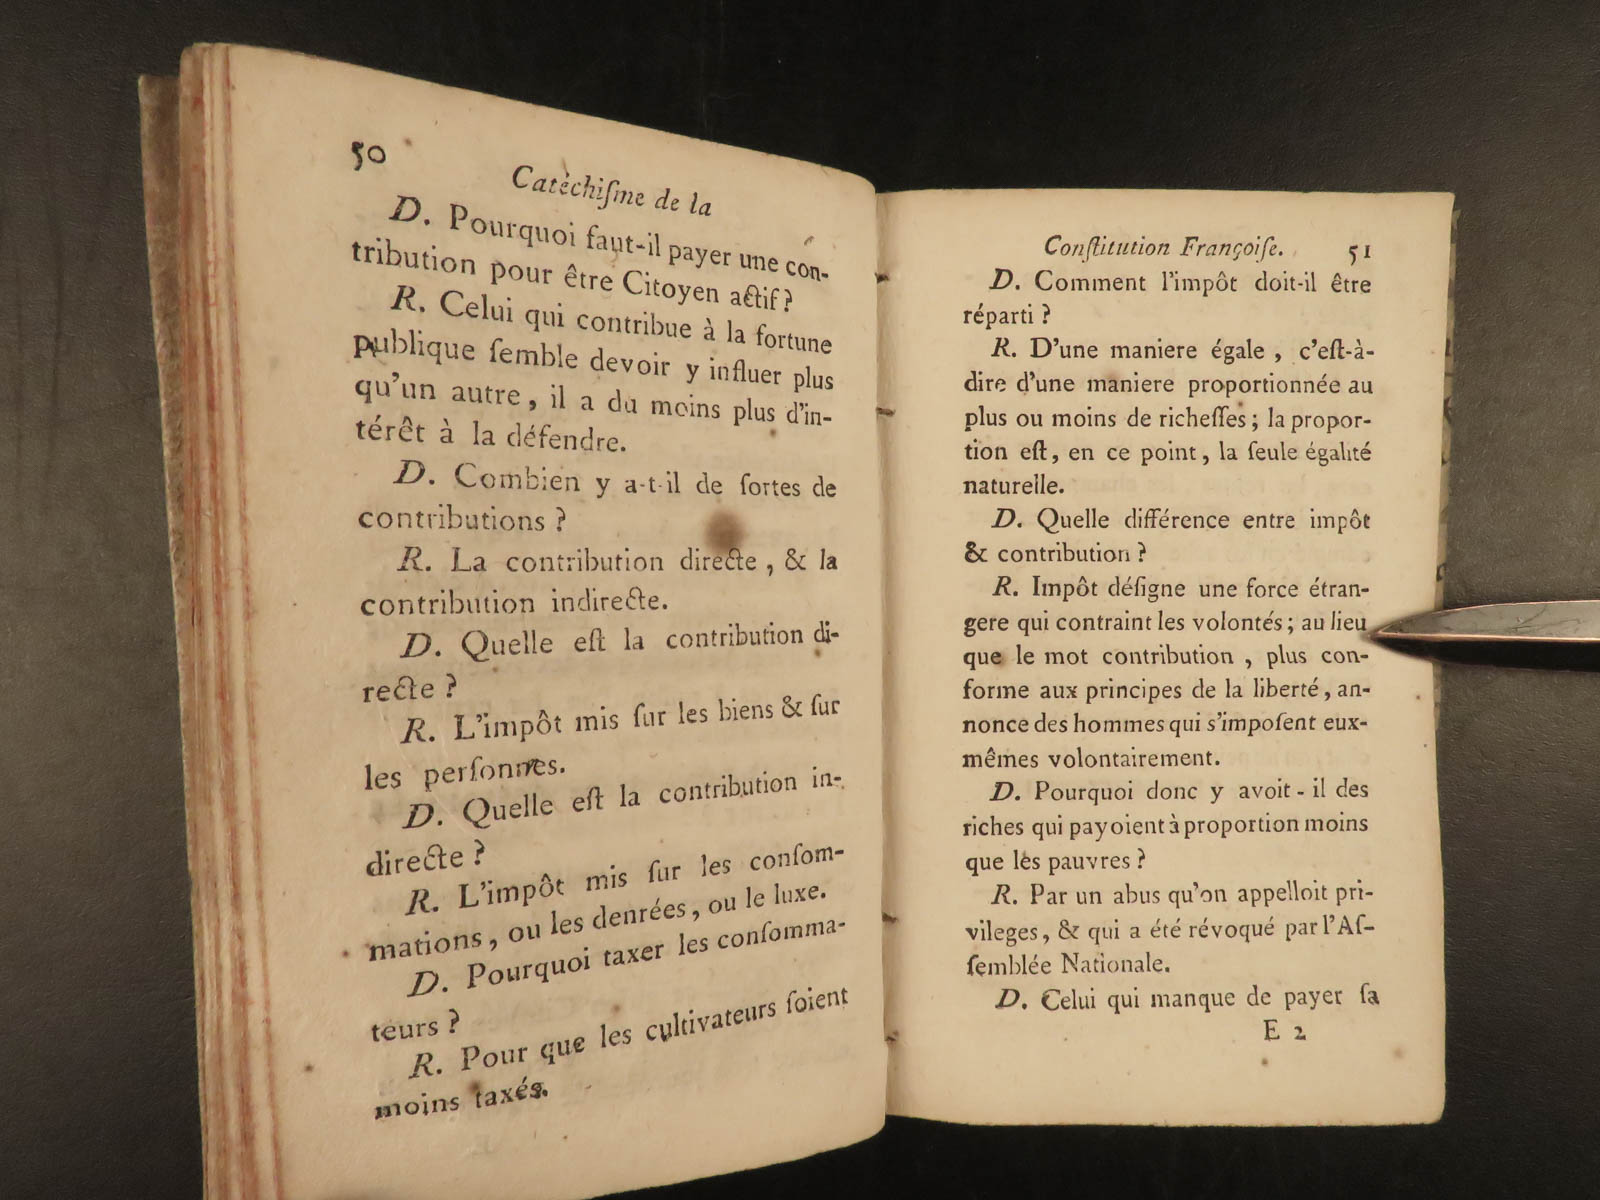 50
Catéchiſme de la
D. Pourquoi faut-il payer une con-
tribution pour être Citoyen actif ?
R. Celui qui contribue à la fortune
publique ſemble devoir y influer plus
qu'un autre, il a du moins plus d'in-
térêt à la défendre.
D. Combien y a-t-il de ſortes de
contributions ?
R. La contribution directe, & la
contribution indirecte.
D. Quelle eſt la contribution di-
recte ?
R. L'impôt mis ſur les biens & ſur
les perſonnes.
D. Quelle eſt la contribution in-
directe ?
R. L'impôt mis ſur les conſom-
mations, ou les denrées, ou le luxe.
D. Pourquoi taxer les conſomma-
teurs ?
R. Pour que les cultivateurs ſoient
moins taxés.
Conſtitution Françoiſe. 51
D. Comment l'impôt doit-il être
réparti ?
R. D'une maniere égale, c'eſt-à-
dire d'une maniere proportionnée au
plus ou moins de richeſſes ; la propor-
tion eſt, en ce point, la ſeule égalité
naturelle.
D. Quelle différence entre impôt
& contribution ?
R. Impôt déſigne une force étran-
gere qui contraint les volontés ; au lieu
que le mot contribution, plus con-
forme aux principes de la liberté, an-
nonce des hommes qui s'impoſent eux-
mêmes volontairement.
D. Pourquoi donc y avoit-il des
riches qui payoient à proportion moins
que les pauvres ?
R. Par un abus qu'on appelloit pri-
vileges, & qui a été révoqué par l'Aſ-
ſemblée Nationale.
D. Celui qui manque de payer ſa
E 2